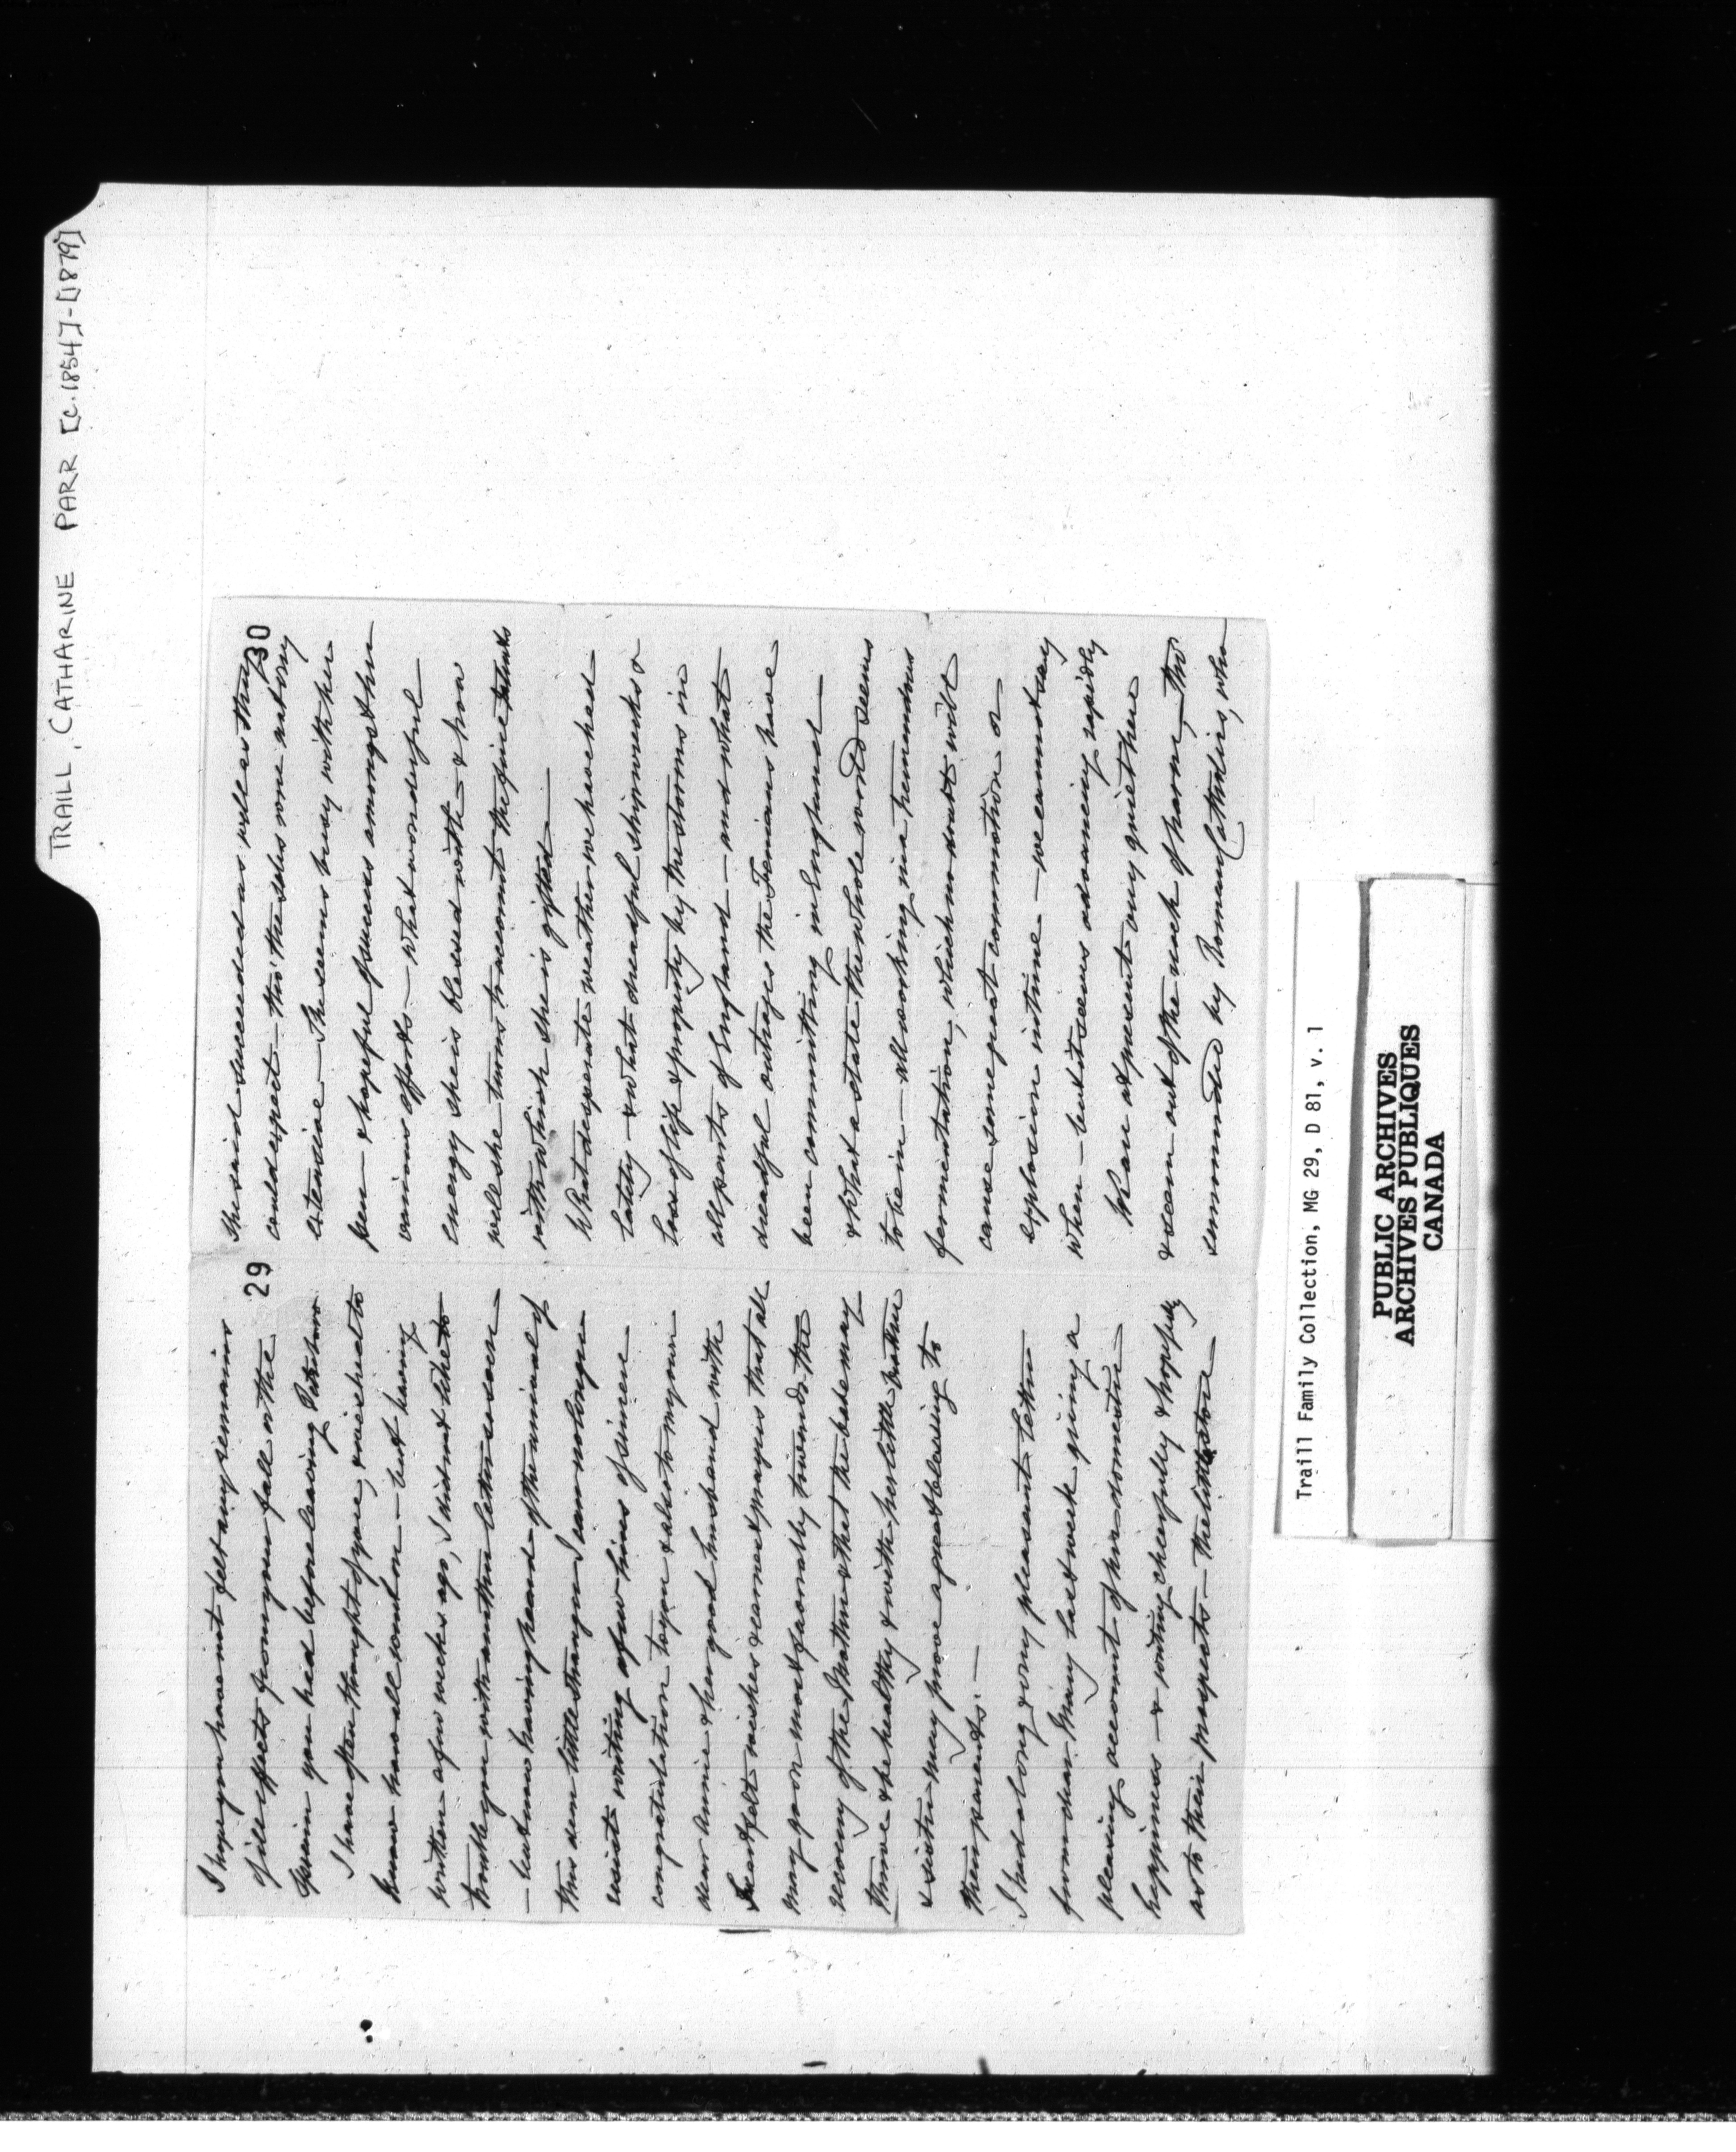 TRAILL, CATHARINE PARR [c.1854]-[1879]
29
I hope you have not felt any remains
of ill effects from your fall on the
you had before leaving
I have often thought of you, & wished to
know how all went on — but having
written a few weeks ago, I did not like to
trouble you with another letter so soon
— but now having heard of the arrival of
this dear little stranger I can no longer
resist writing a few lines of sincere
congratulation to you & also to your
dear Annie & her good husband with
heartfelt wishes & earnest prayers that all
may go on most favorably towards the
recovery of the Mother & that the babe may
thrive & be healthy & with her little brother
& sister may prove a great blessing to
their parents. —
I had a long & very pleasant letter
from dear Mary last week giving a
pleasing account of her domestic
happiness — & writing cheerfully & hopefully
as to their prospects — the little store
30
she said succeeded as well as they
could expect — tho' the sales were not very
extensive — She seems busy with her
pen — & hopeful of success amongst her
various efforts — what wonderful
energy she is blessed with — & how
well she turns to account the fine talents
with which she is gifted —
What desperate weather we have had
lately — & what dreadful shipwrecks &
loss of life & property by the storms in
all parts of England — and what
dreadful outrages the Fenians have
been committing in England —
& what a state the whole world seems
to be in — all working in a tremendous
fermentation, which no doubt will
cause some great commotion or
explosion in time — we cannot say
when — but it seems advancing rapidly
We are at present very quiet here
& seem out of the reach of harm, — tho'
surrounded by Roman Catholics, who
Traill Family Collection, MG 29, D 81, v. 1
PUBLIC ARCHIVES
ARCHIVES PUBLIQUES
CANADA